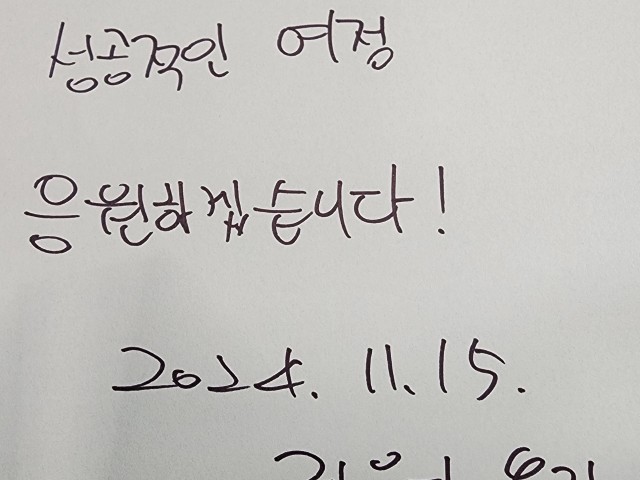 성공적인 여정
응원하겠습니다!
2024. 11. 15.